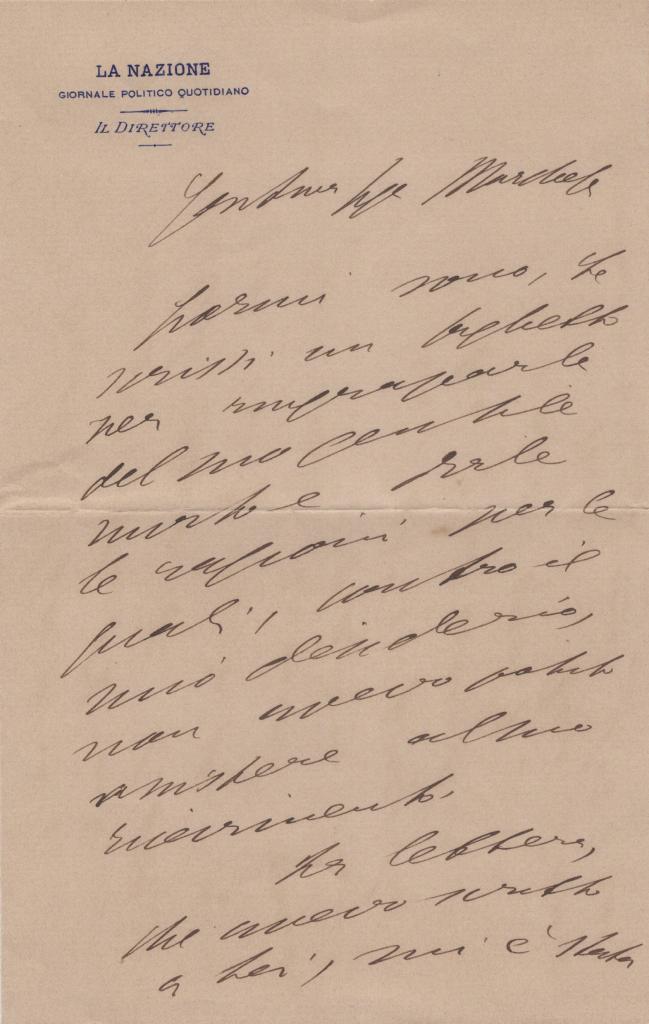 LA NAZIONE
GIORNALE POLITICO QUOTIDIANO
IL DIRETTORE
Marchese
Giorni sono, Le
scrissi un biglietto
per ringraziarla
del suo gentile
invito e
le ragioni per le
quali, contro il
mio desiderio,
non avevo potuto
assistere al suo
ricevimento.
La lettera,
che avevo scritto
a Lei, mi è stata